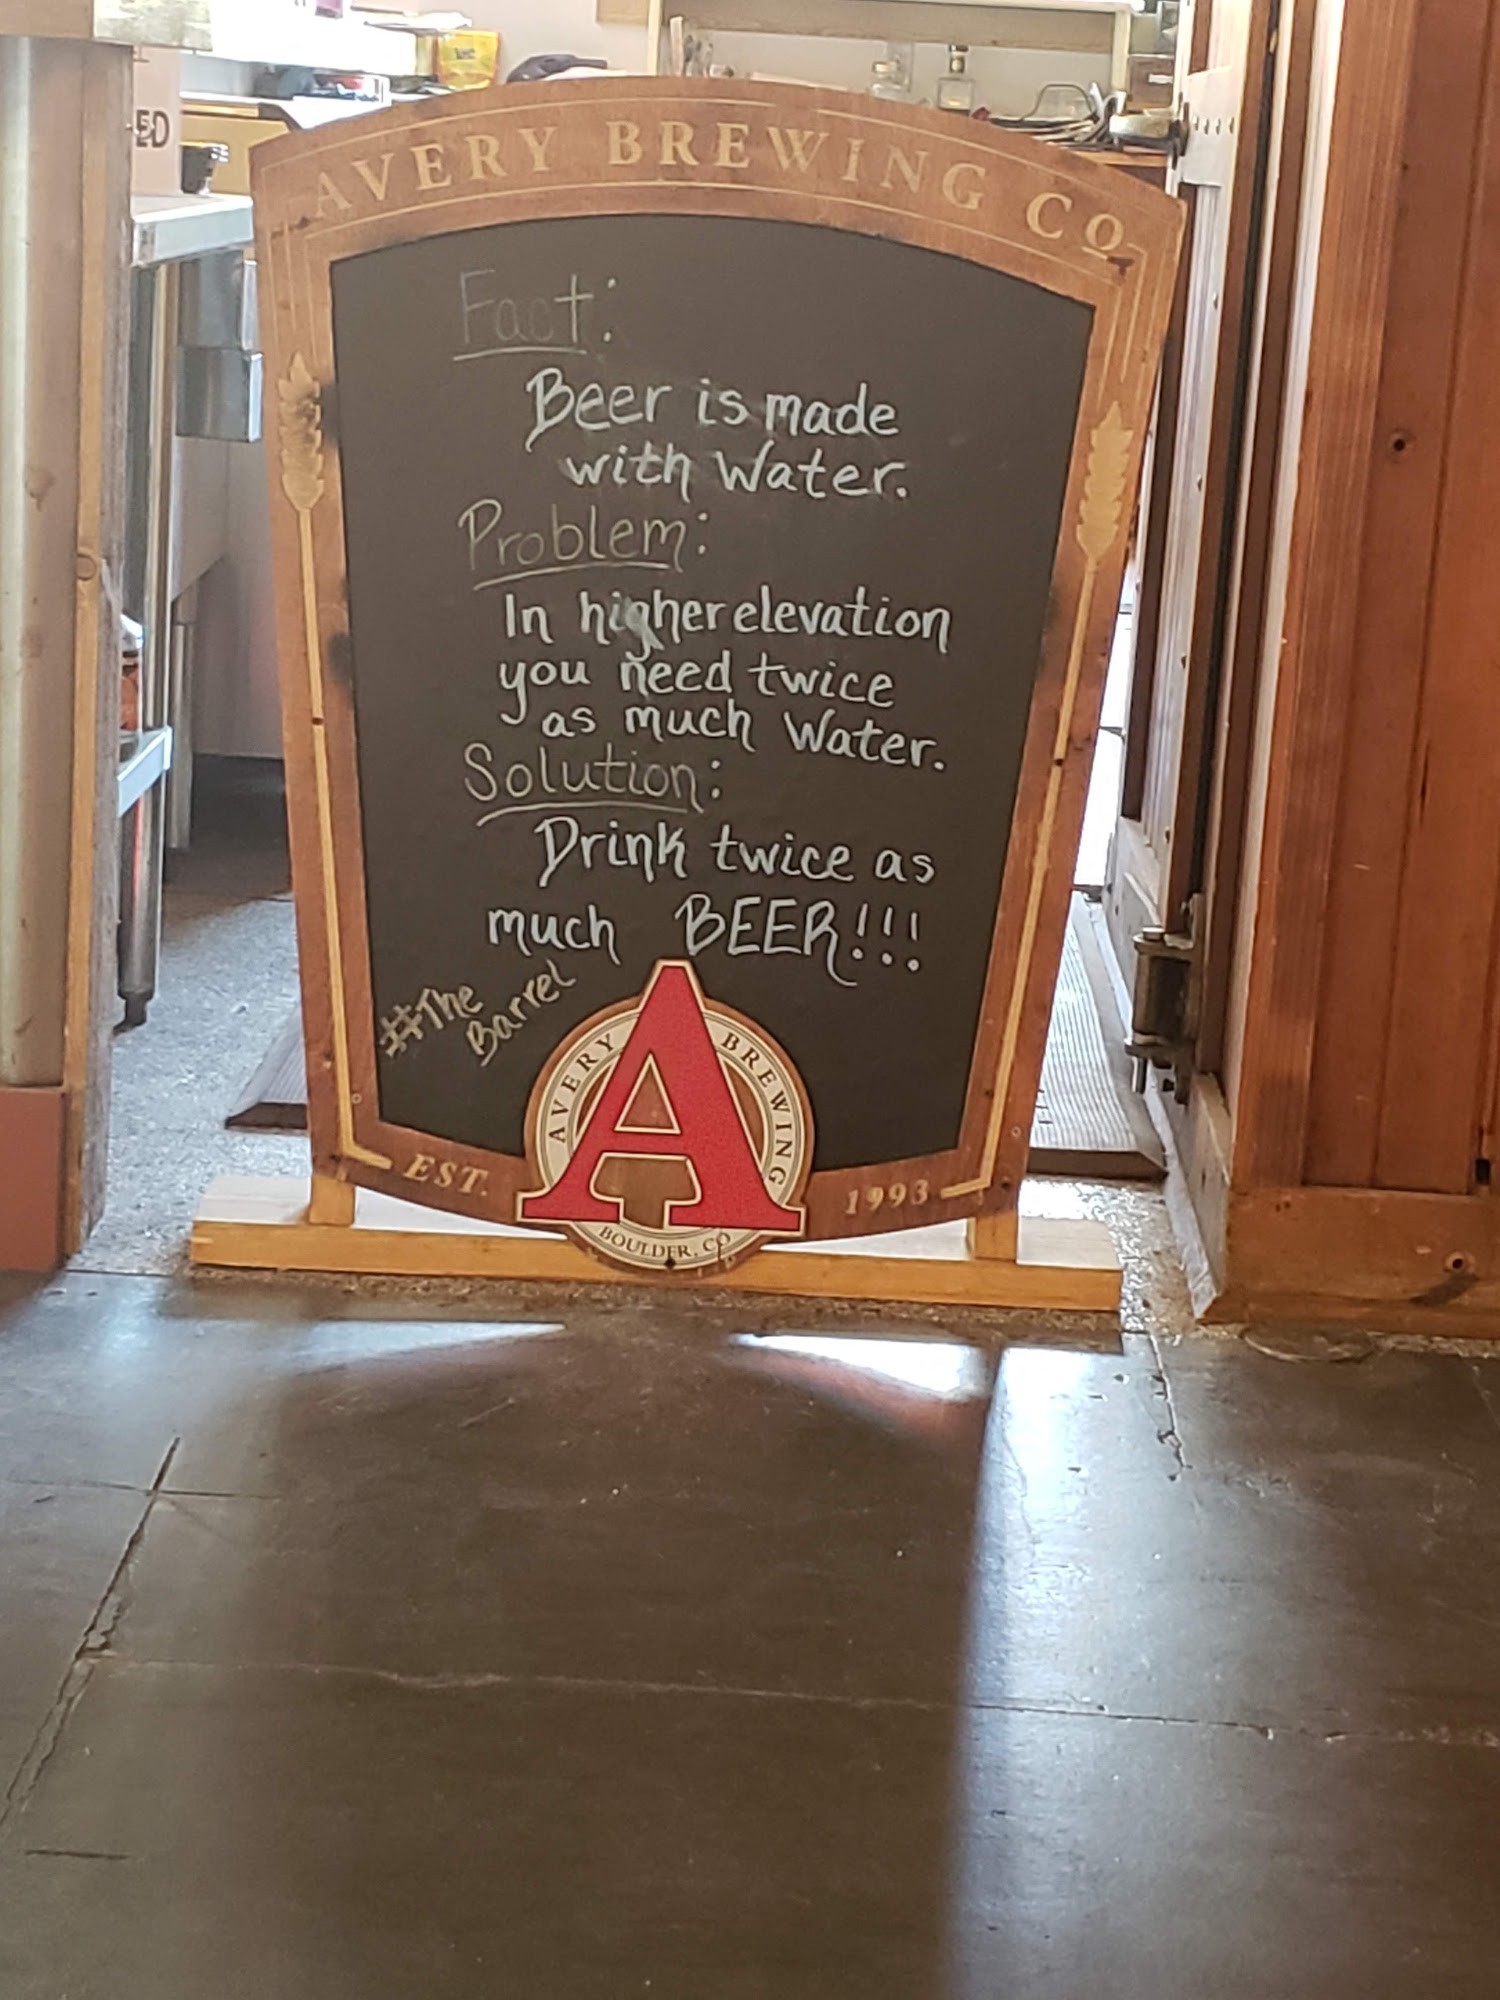 AVERY BREWING CO
Fact:
Beer is made
with Water.
Problem:
In higher elevation
you need twice
as much Water.
Solution:
Drink twice as
much BEER!!!
#The
Barrel
AVERY BREWING
BOULDER, CO
EST. 1993
ED